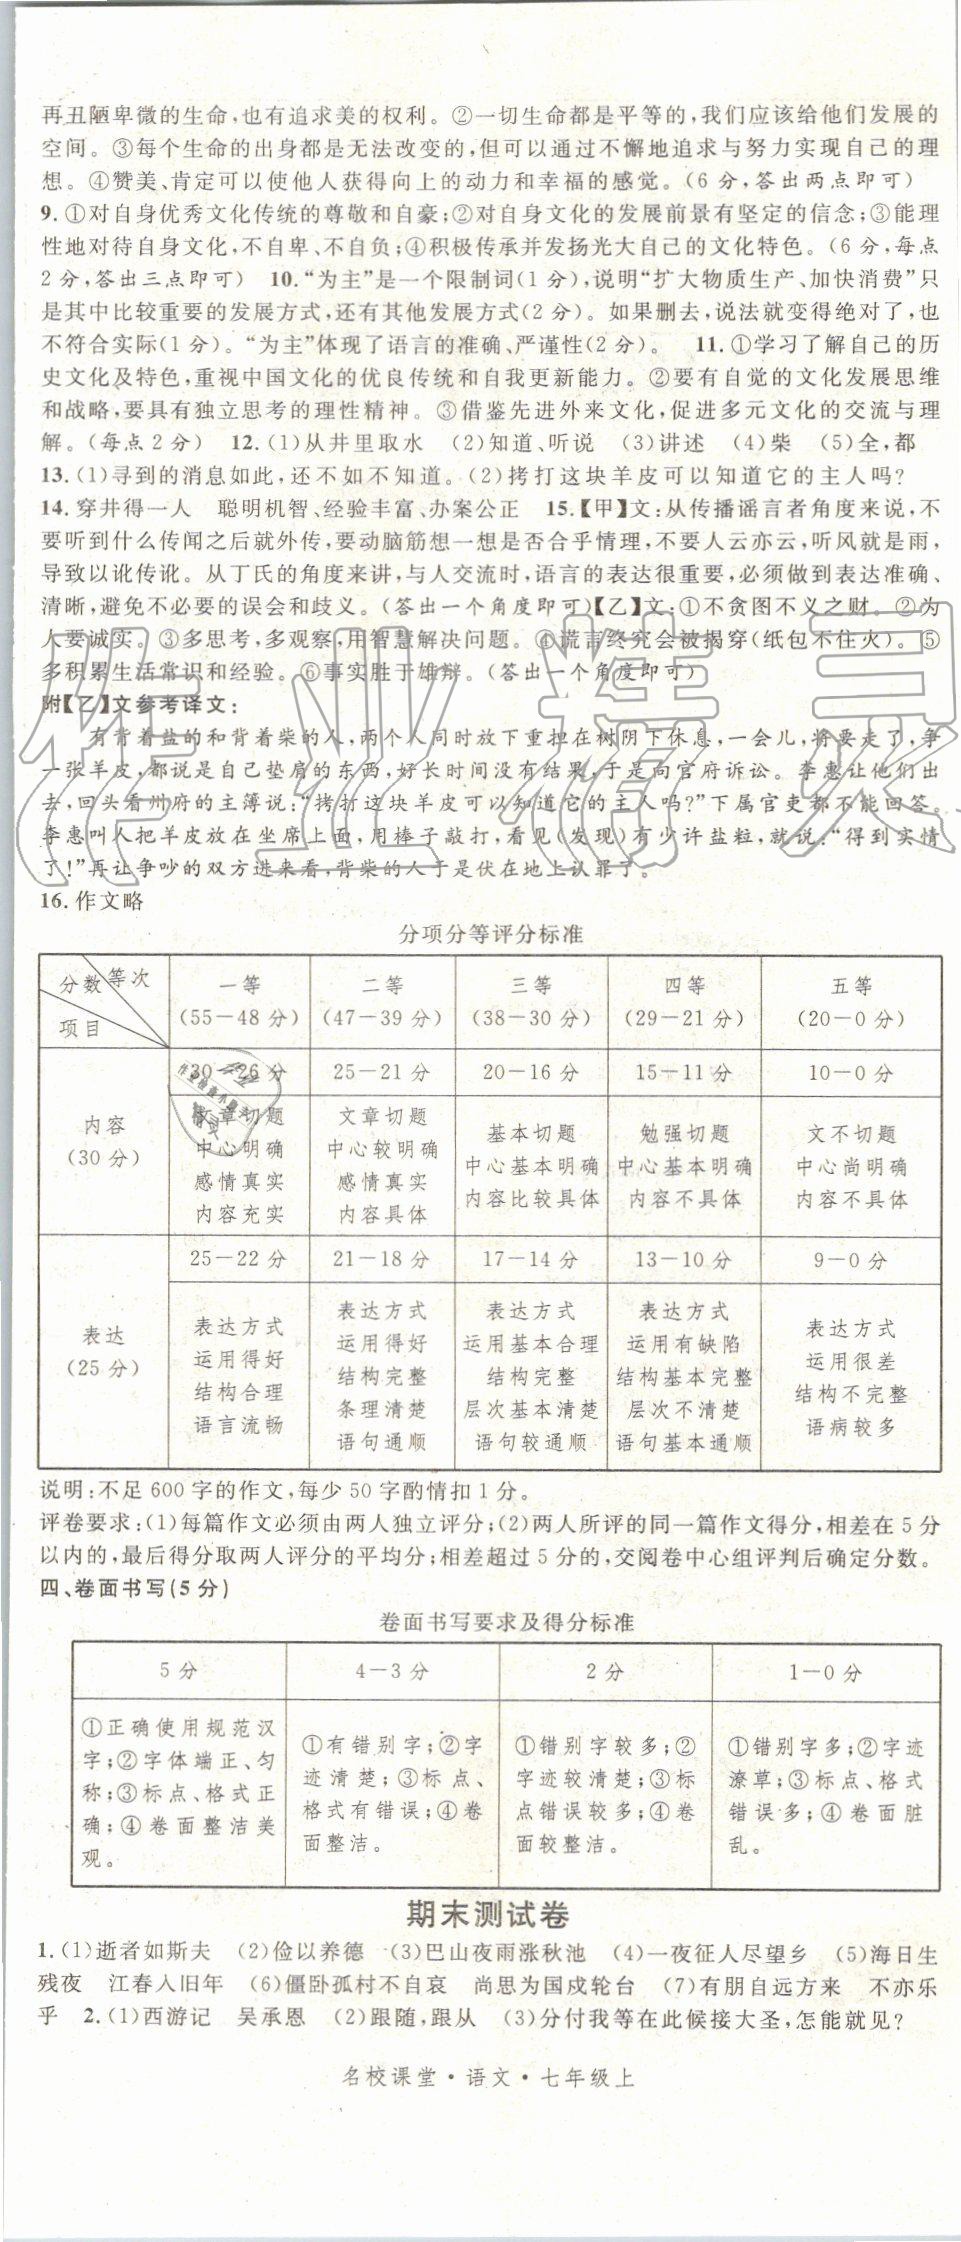 再丑陋卑微的生命,也有追求美的权利。②一切生命都是平等的,我们应该给他们发展的
空间。③每个生命的出身都是无法改变的,但可以通过不懈地追求与努力实现自己的理
想。④赞美、肯定可以使他人获得向上的动力和幸福的感觉。(6分,答出两点即可)
9.①对自身优秀文化传统的尊敬和自豪;②对自身文化的发展前景有坚定的信念;③能理
性地对待自身文化,不自卑、不自负;④积极传承并发扬光大自己的文化特色。(6分,每点
2分,答出三点即可) 10.“为主”是一个限制词(1分),说明“扩大物质生产、加快消费”只
是其中比较重要的发展方式,还有其他发展方式(2分)。如果删去,说法就变得绝对了,也
不符合实际(1分)。“为主”体现了语言的准确、严谨性(2分)。 11.①学习了解自己的历
史文化及特色,重视中国文化的优良传统和自我更新能力。②要有自觉的文化发展思维
和战略,要具有独立思考的理性精神。③借鉴先进外来文化,促进多元文化的交流与理
解。(每点2分) 12.(1)从井里取水 (2)知道、听说 (3)讲述 (4)柴 (5)全,都
13.(1)寻到的消息如此,还不如不知道。(2)拷打这块羊皮可以知道它的主人吗?
14.穿井得一人 聪明机智、经验丰富、办案公正 15.【甲】文:从传播谣言者角度来说,不
要听到什么传闻之后就外传,要动脑筋想一想是否合乎情理,不要人云亦云,听风就是雨,
导致以讹传讹。从丁氏的角度来讲,与人交流时,语言的表达很重要,必须做到表达准确、
清晰,避免不必要的误会和歧义。(答出一个角度即可)【乙】文:①不贪图不义之财。②为
人要诚实。③多思考,多观察,用智慧解决问题。④谎言终究会被揭穿(纸包不住火)。⑤
多积累生活常识和经验。⑥事实胜于雄辩。(答出一个角度即可)
附【乙】文参考译文:
有背着盐的和背着柴的人,两个人同时放下重担在树阴下休息,一会儿,将要走了,争
一张羊皮,都说是自己垫肩的东西,好长时间没有结果,于是向官府诉讼。李惠让他们出
去,回头看州府的主簿说:“拷打这块羊皮可以知道它的主人吗?”下属官吏都不能回答。
李惠叫人把羊皮放在坐席上面,用棒子敲打,看见(发现)有少许盐粒,就说:“得到实情
了!”再让争吵的双方进来看,背柴的人于是伏在地上认罪了。
16.作文略
分项分等评分标准
分数 等次 项目 一等 二等 三等 四等 五等
(55—48分) (47—39分) (38—30分) (29—21分) (20—0分)
内容
(30分)
30—26分 25—21分 20—16分 15—11分 10—0分
文章切题 文章切题 基本切题 勉强切题 文不切题
中心明确 中心较明确 中心基本明确 中心基本明确 中心尚明确
感情真实 感情真实 内容比较具体 内容不具体 内容不具体
内容充实 内容具体
表达
(25分)
25—22分 21—18分 17—14分 13—10分 9—0分
表达方式 表达方式 表达方式 表达方式 表达方式
运用得好 运用得好 运用基本合理 运用有缺陷 运用很差
结构合理 结构完整 结构完整 结构基本完整 结构不完整
语言流畅 条理清楚 层次基本清楚 层次不清楚 语病较多
语句通顺 语句较通顺 语句基本通顺
说明:不足600字的作文,每少50字酌情扣1分。
评卷要求:(1)每篇作文必须由两人独立评分;(2)两人所评的同一篇作文得分,相差在5分
以内的,最后得分取两人评分的平均分;相差超过5分的,交阅卷中心组评判后确定分数。
四、卷面书写(5分)
卷面书写要求及得分标准
5分 4—3分 2分 1—0分
①正确使用规范汉
字;②字体端正、匀
称;③标点、格式正
确;④卷面整洁美
观。
①有错别字;②字
迹清楚;③标点、
格式有错误;④卷
面整洁。
①错别字较多;②
字迹较清楚;③标
点错误较多;④卷
面较整洁。
①错别字多;②字迹
潦草;③标点、格式
错误多;④卷面脏
乱。
期末测试卷
1.(1)逝者如斯夫 (2)俭以养德 (3)巴山夜雨涨秋池 (4)一夜征人尽望乡 (5)海日生
残夜 江春入旧年 (6)僵卧孤村不自哀 尚思为国戍轮台 (7)有朋自远方来 不亦乐
乎 2.(1)西游记 吴承恩 (2)跟随,跟从 (3)分付我等在此候接大圣,怎能就见?
名校课堂·语文·七年级上
作业精灵